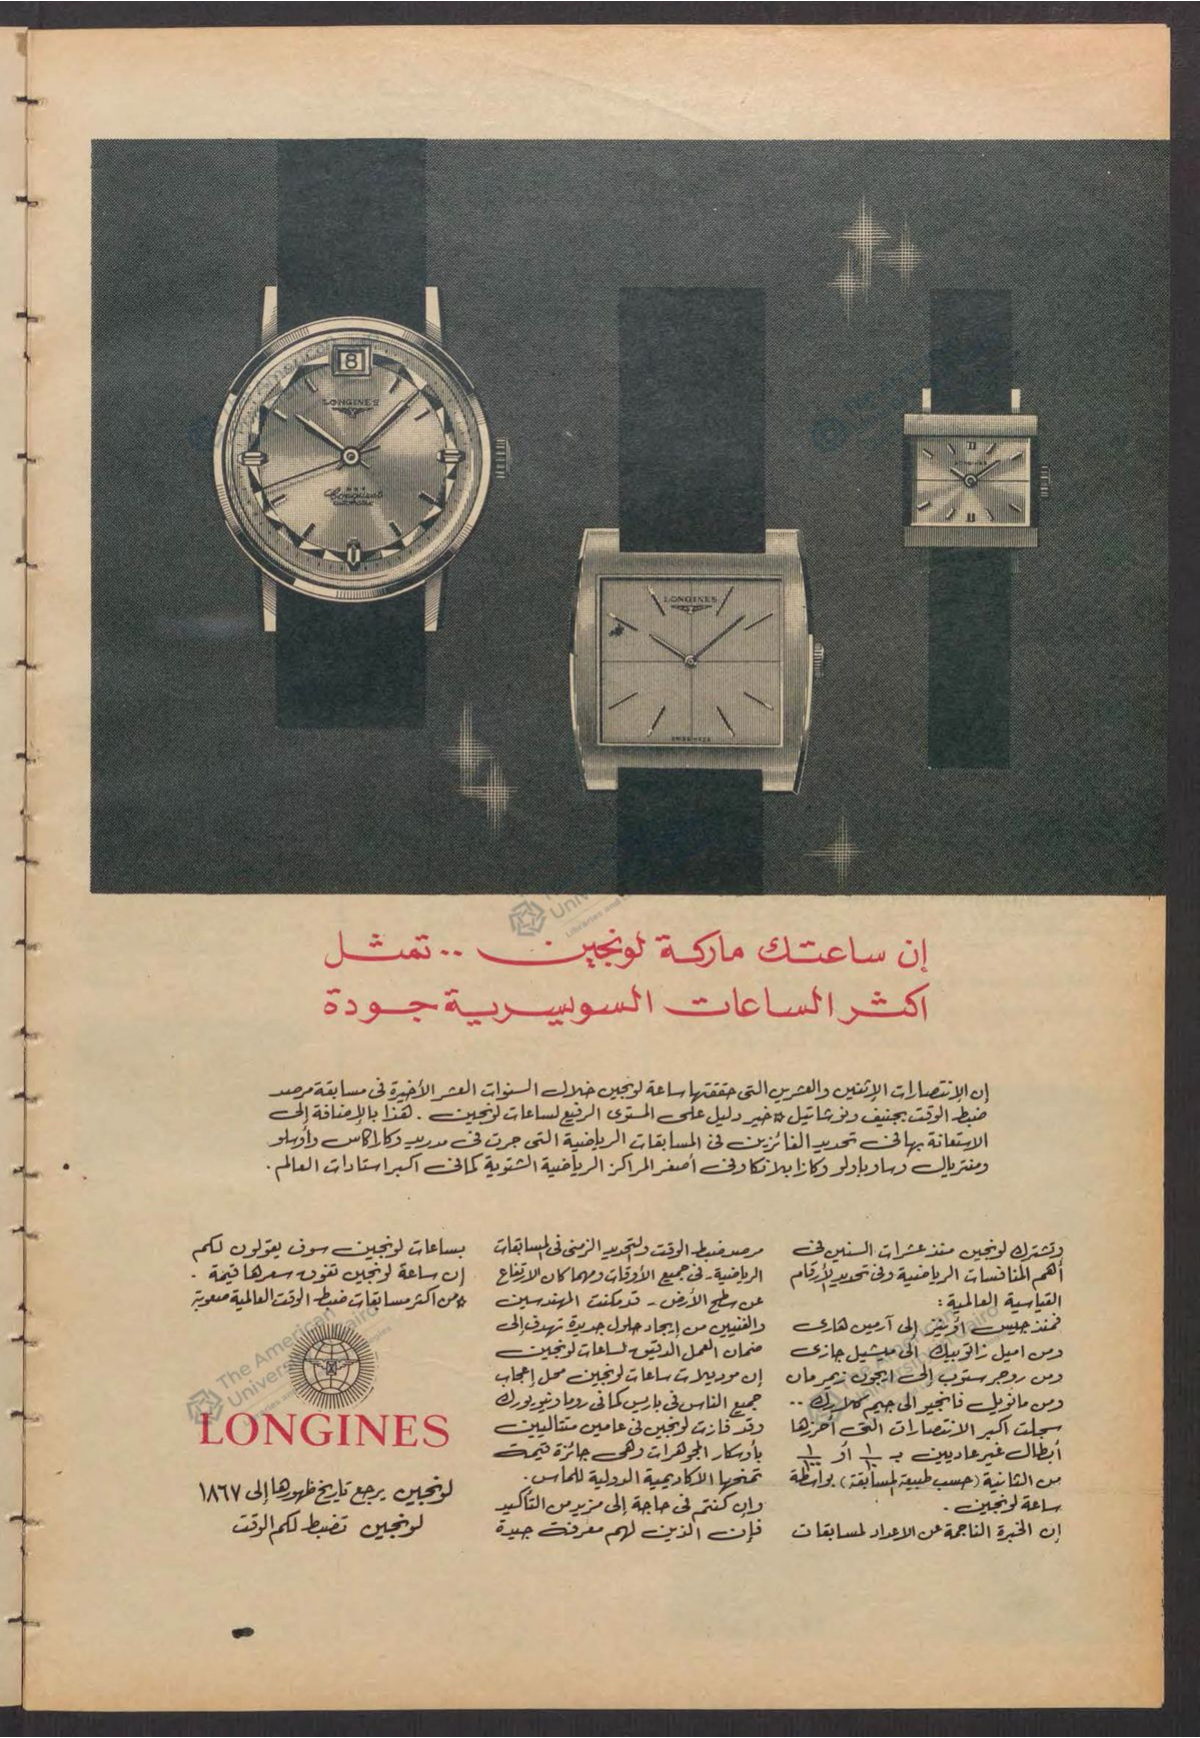 8
LONGINES
LONGINES
SWISS MADE
إن ساعتك ماركة لونجين .. تمثل
اكثر الساعات السويسرية جودة
إن الانتصارات الاثنين والعشرين التى حققتها ساعة لونجين خلال السنوات العشر الأخيرة فى مسابقة مرصد
ضبط الوقت بجنيف ونوشاتيل * خير دليل على المستوى الرفيع لساعات لونجين . هذا بالإضافة إلى
الاستعانة بها فى تحديد الفائزين فى المسابقات الرياضية التى جرت فى مدريد وكاراكاس وأوسلو
ومنتريال وساوباولو وكازابلانكا وفى أصغر المراكز الرياضية الشتوية كما فى اكبر استادات العالم .
وتشترك لونجين منذ عشرات السنين فى
أهم المنافسات الرياضية وفى تحديد الأرقام
القياسية العالمية :
فمنذ جيسى أوينز إلى آرمين هارى
ومن اميل زاتوبيك إلى ميشيل جازى
ومن روجر ستوب إلى ايجون زيمرمان
ومن مانويل فانجيو الى جيم كلارك ..
سجلت أكبر الانتصارات التى أحرزها
أبطال غير عاديين بـ ١/١٠ أو ١/١٠٠
من الثانية (حسب طبيعة المسابقة) بواسطة
ساعة لونجين .
إن الخبرة الناجمة عن الاعداد لمسابقات
مرصد ضبط الوقت والتحديد الزمنى فى المسابقات
الرياضية - فى جميع الأوقات ومهما كان الارتفاع
عن سطح الأرض - قد مكنت المهندسين
والفنيين من إيجاد حلول جديدة تهدف إلى
ضمان العمل الدقيق لساعات لونجين
إن موديلات ساعات لونجين محل إعجاب
جميع الناس فى باريس كما فى روما ونيويورك
وقد فازت لونجين فى عامين متتاليين
بأوسكار المجوهرات وهى جائزة قيمة
تمنحها الأكاديمية الدولية للماس .
وإن كنتم فى حاجة إلى مزيد من التأكيد
فإن الذين لهم معرفة جيدة
بساعات لونجين سوف يقولون لكم
إن ساعة لونجين تفوق سعرها قيمة .
* من اكثر مسابقات ضبط الوقت العالمية صعوبة
LONGINES
لونجين يرجع تاريخ ظهورها إلى ١٨٦٧
لونجين تضبط لكم الوقت